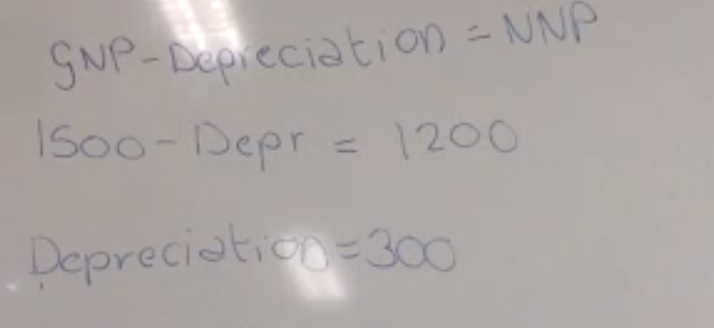 GNP-Depreciation = NNP
1500-Depr = 1200
Depreciation=300